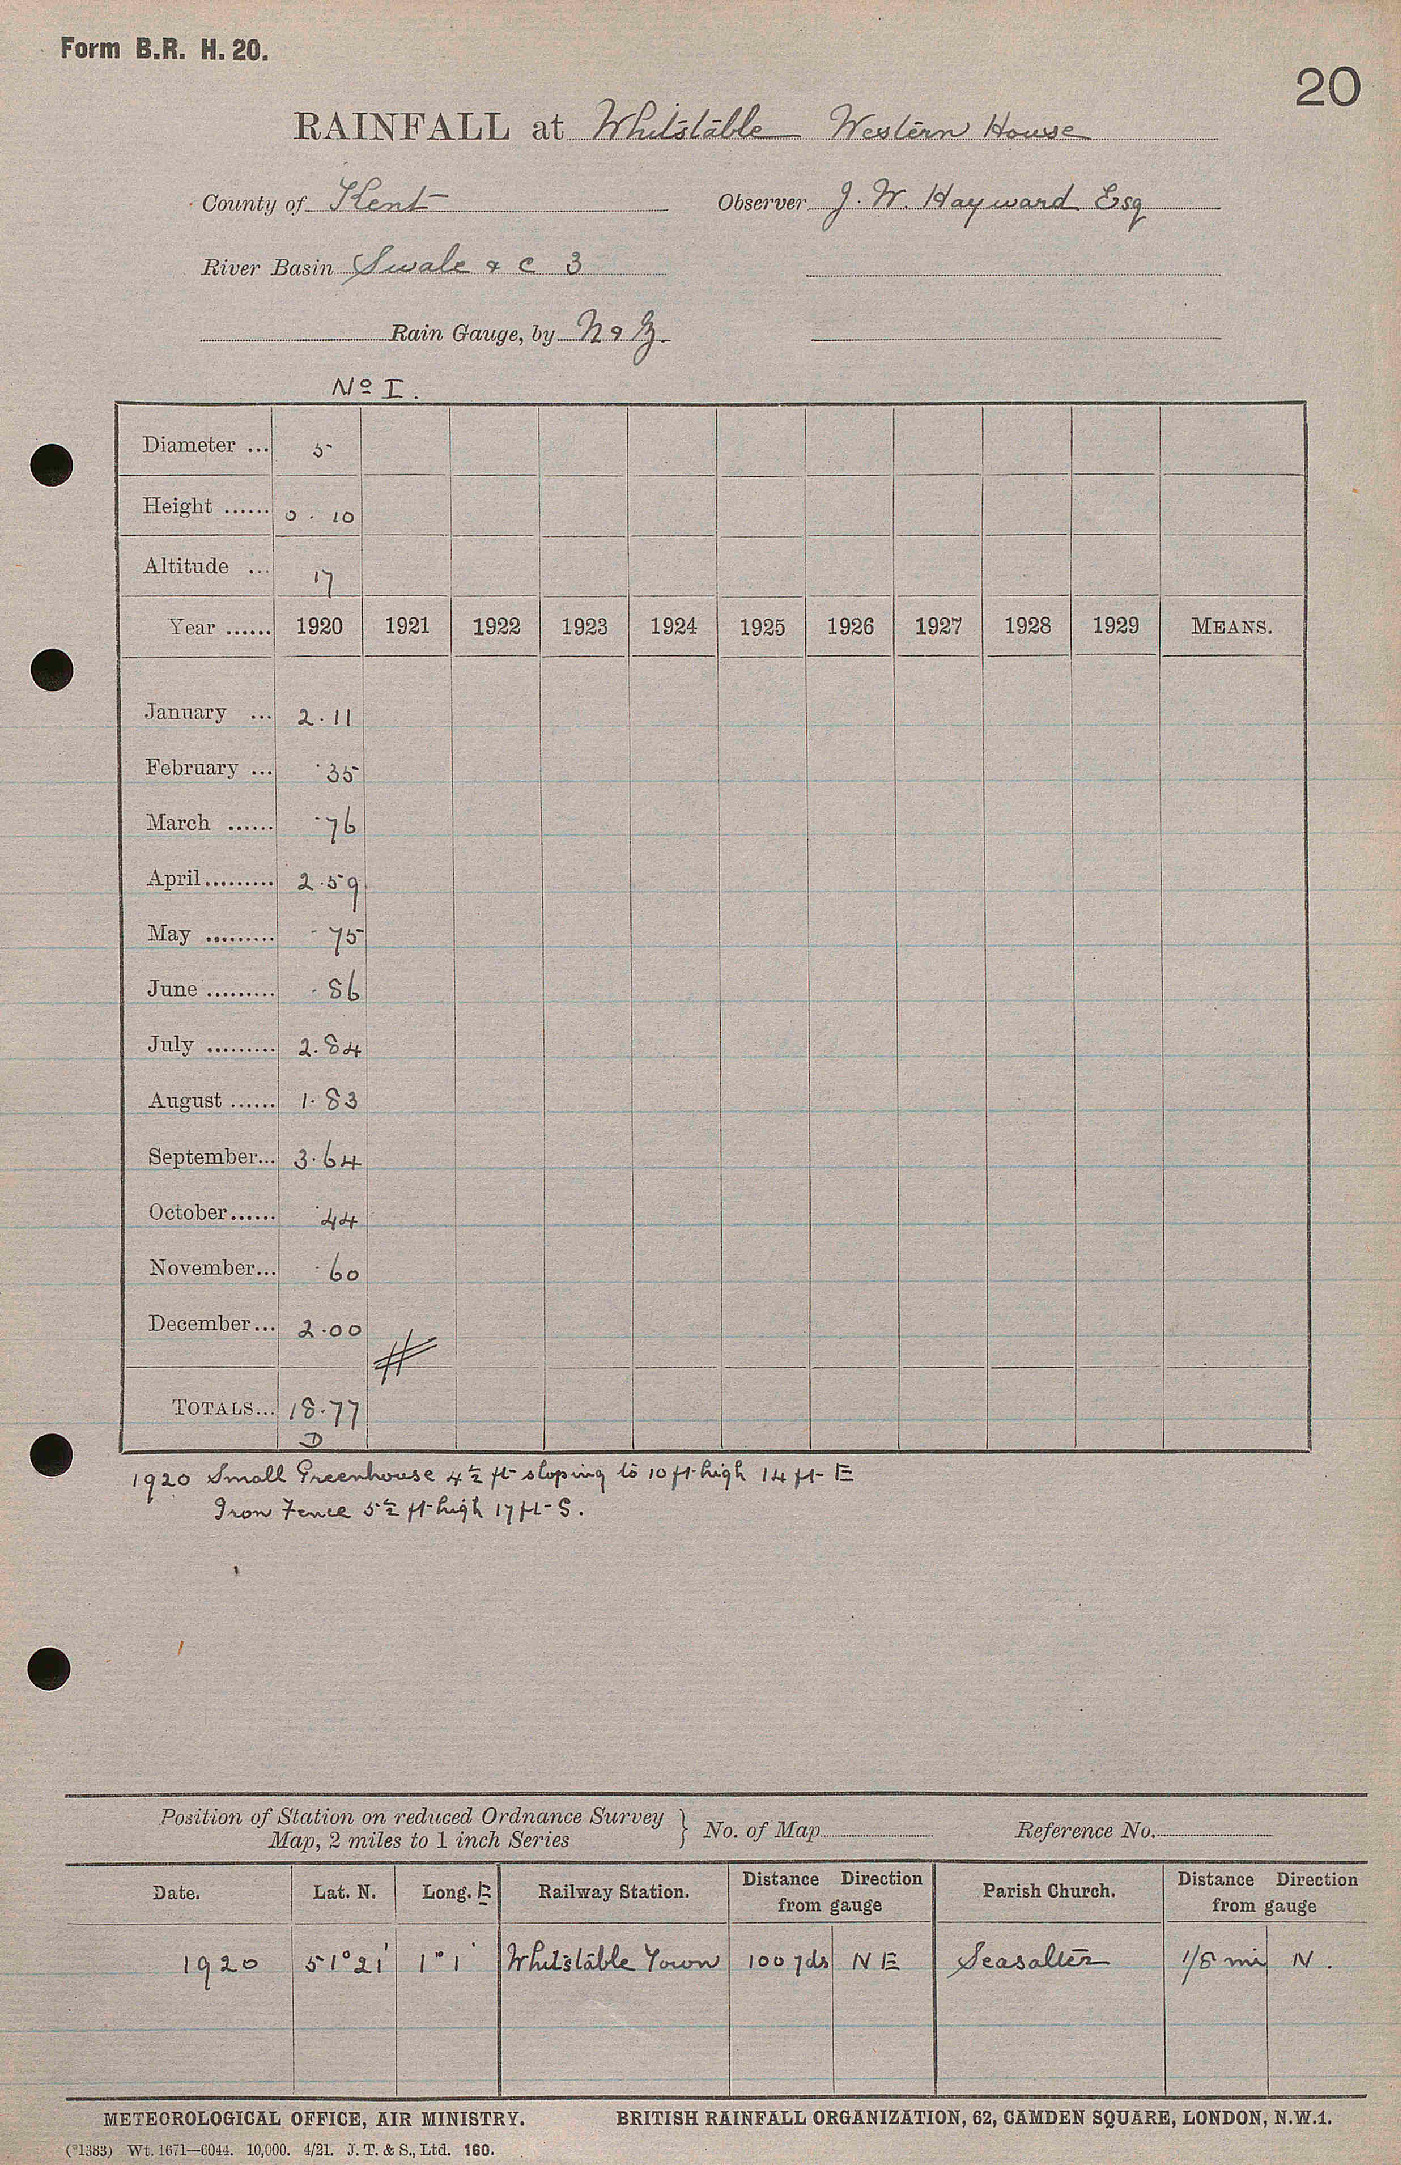 Form B.R. H. 20.
20
RAINFALL at Whitstable Western House
County of Kent Observer J. W. Hayward Esq
River Basin Swale & c 3
Rain Gauge, by N & Z.
Nº I.
Diameter ... 5
Height ...... 0 . 10
Altitude ... 17
Year ...... 1920 1921 1922 1923 1924 1925 1926 1927 1928 1929 MEANS.
January ... 2.11
February ... .35
March ...... .76
April......... 2.59
May ......... .75
June ......... .86
July ......... 2.84
August ...... 1.83
September... 3.64
October...... .44
November... .60
December... 2.00
TOTALS... 18.77
D
1920 Small Greenhouse 4½ ft sloping to 10 ft high 14 ft E
Iron Fence 5½ ft high 17 ft S.
Position of Station on reduced Ordnance Survey
Map, 2 miles to 1 inch Series } No. of Map Reference No.
Date. Lat. N. Long. E Railway Station. Distance Direction from gauge Parish Church. Distance Direction from gauge
1920 51°21' 1°1' Whitstable Town 100 yds N E Seasalter 1/8 mi N.
METEOROLOGICAL OFFICE, AIR MINISTRY. BRITISH RAINFALL ORGANIZATION, 62, CAMDEN SQUARE, LONDON, N.W.1.
(*1383) Wt. 1671—6044. 10,000. 4/21. J. T. & S., Ltd. 160.